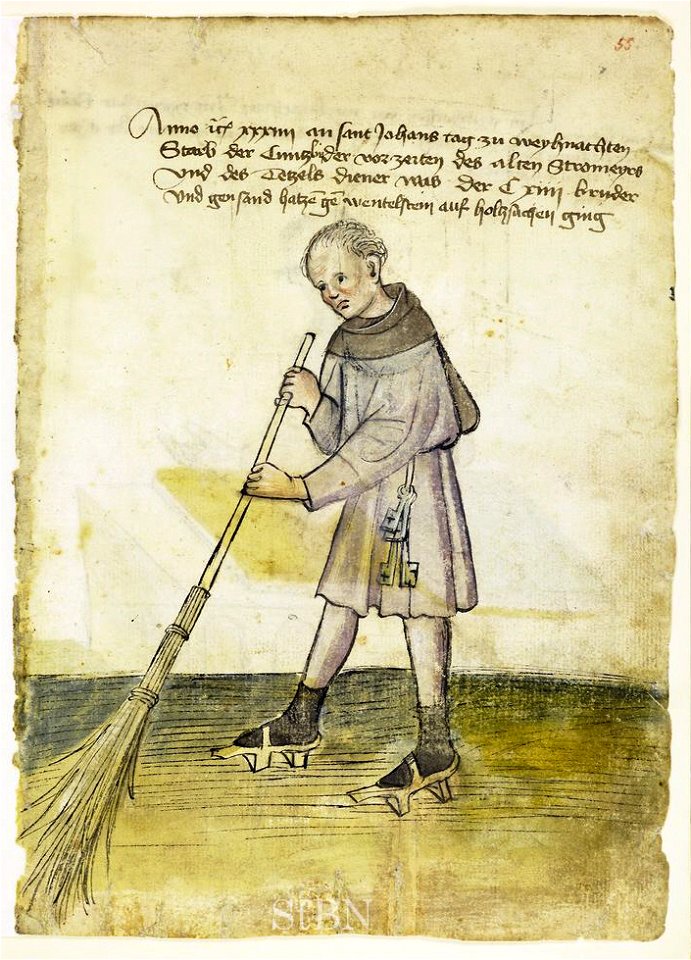 55
Anno iiijc xxxiiii an sant Johans tag zu weyhnachten
Starb der Cuntz bider vor zeiten des alten Stromeyrs
Und des Tetzels diener was der C xiiii bruder
Und gen sand hatzen gen wentelstein auf holtzschen ging
StBN